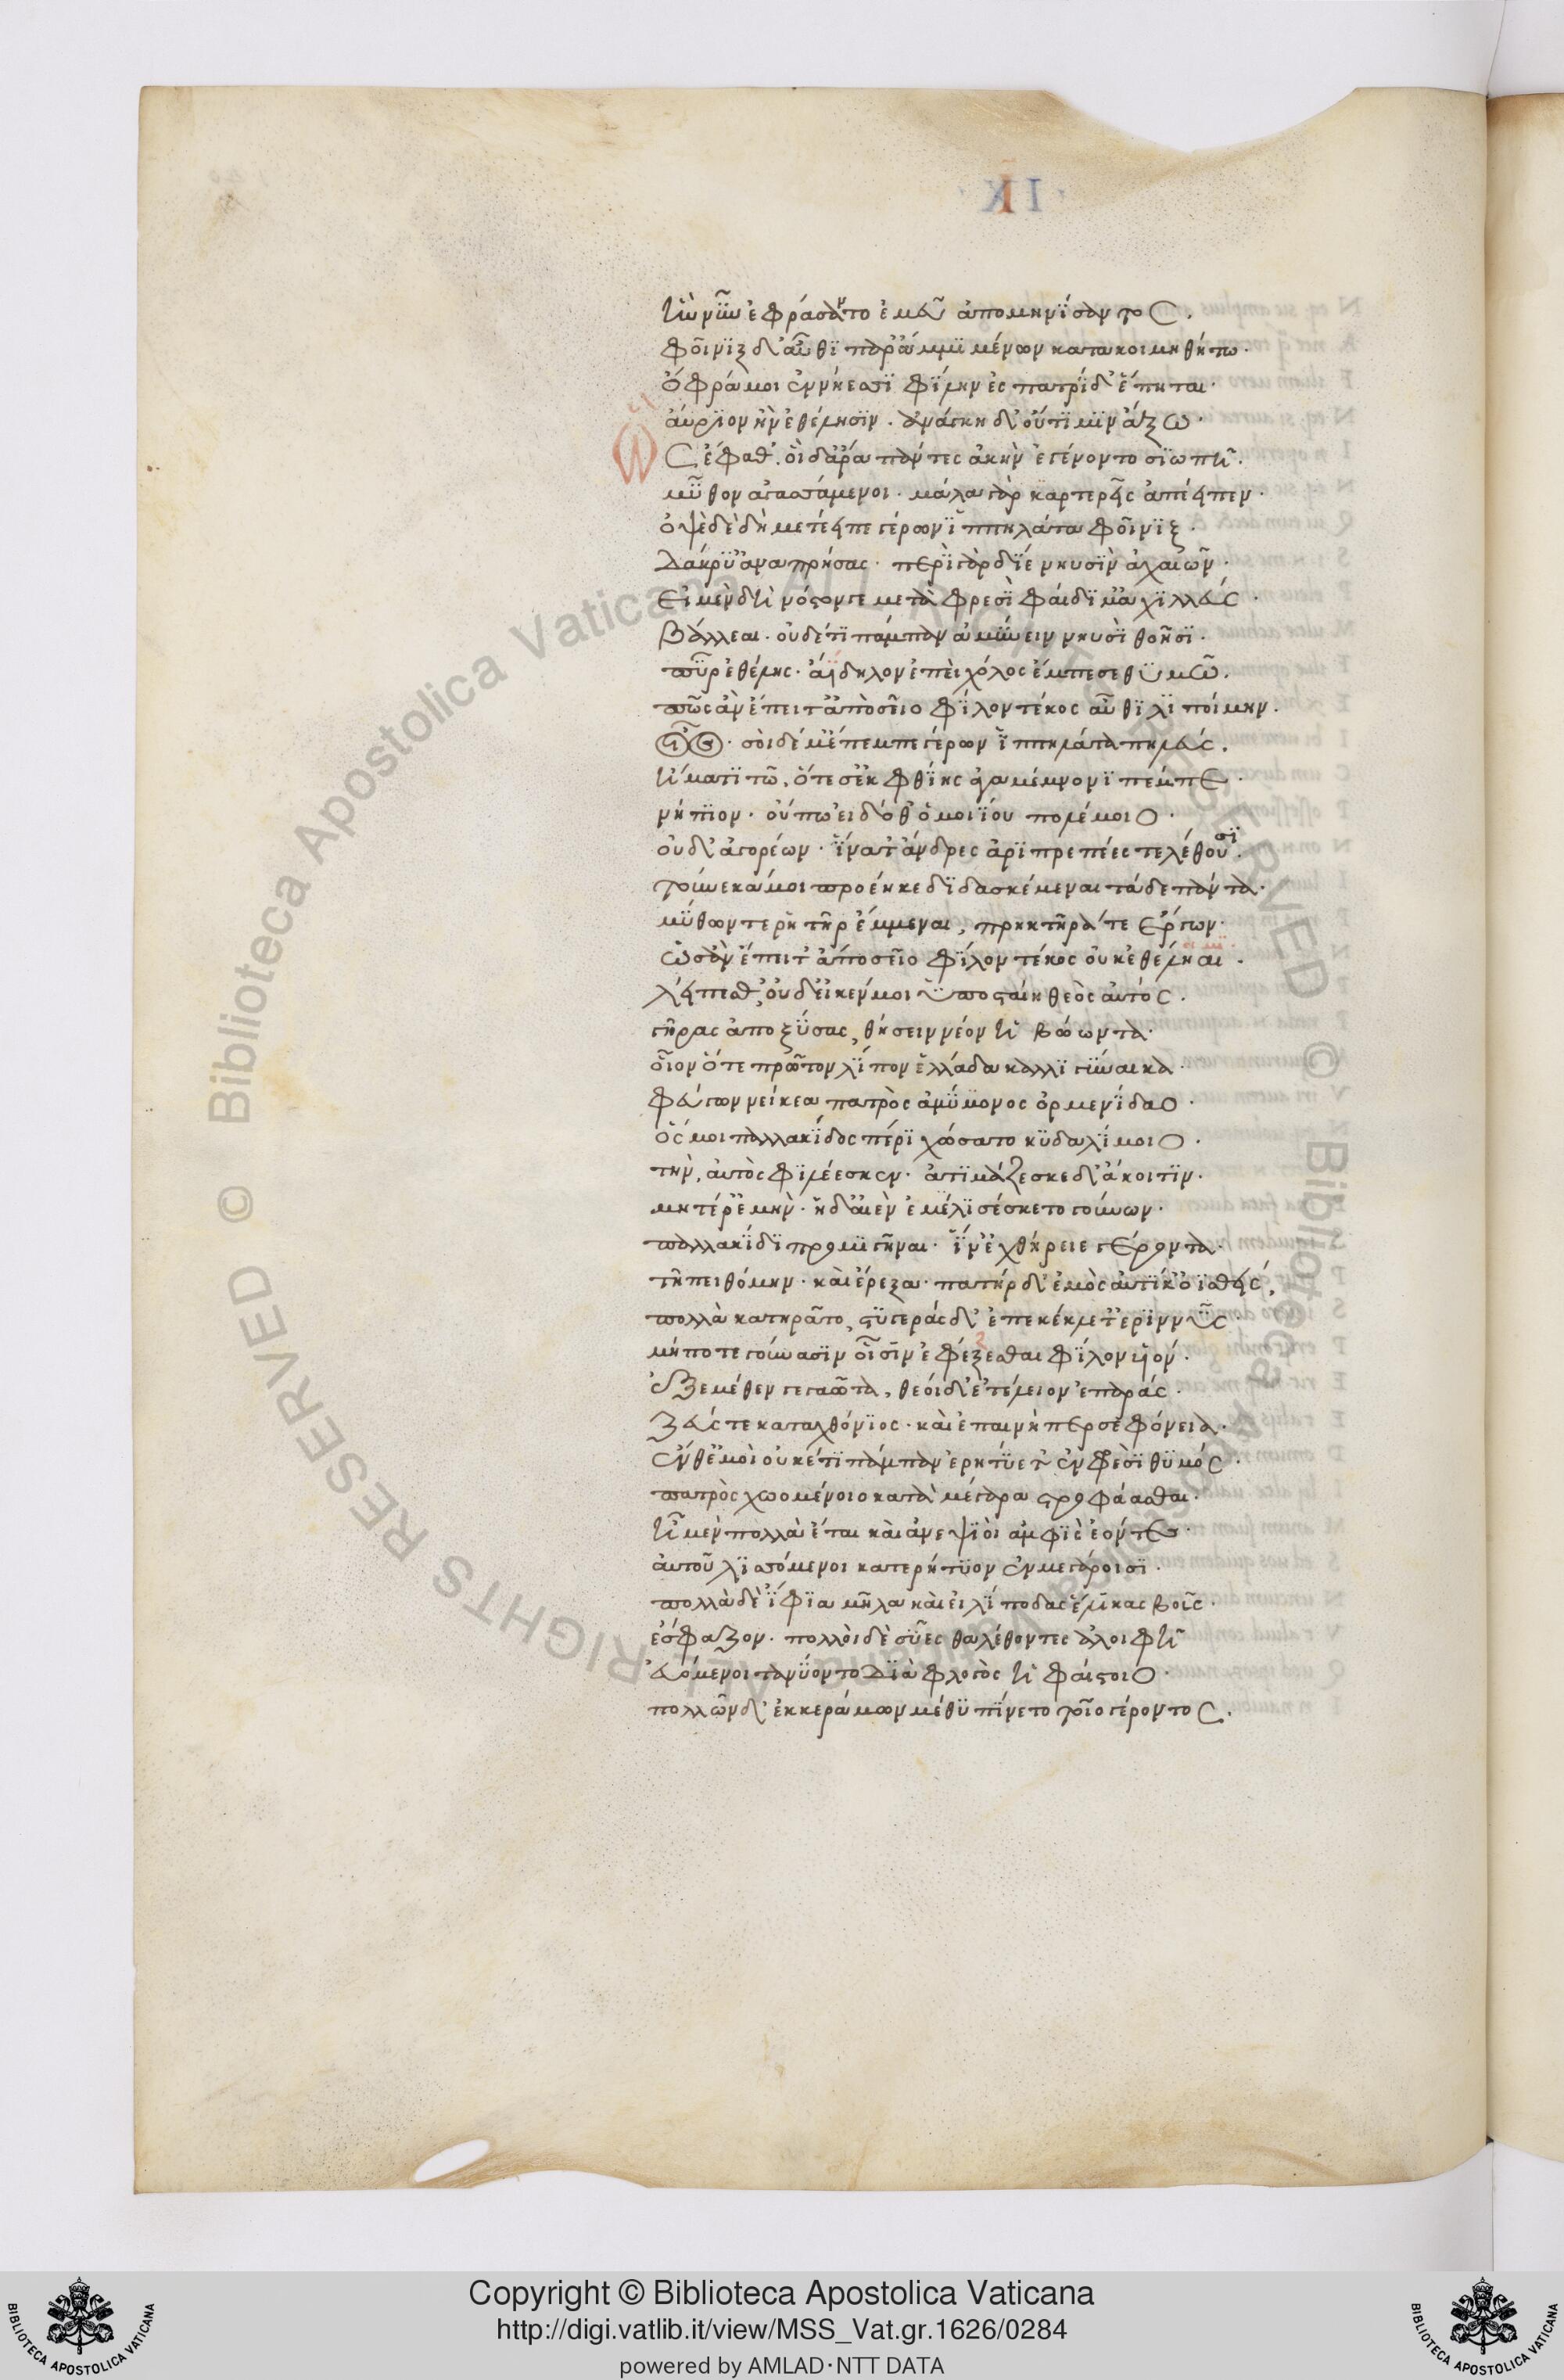 ·IK·
ἣν νῦν ἐφράσαντο ἐμεῦ ἀπομηνίσαντος.
φοῖνιξ δ' αὖθι παρ' ἄμμι μένων κατακοιμηθήτω·
ὄφρα μοι ἐν νήεσσι φίλην ἐς πατρίδ' ἕπηται·
αὔριον ἢν ἐθέλησιν. ἀνάγκη δ' οὔτι μιν ἄξω·
Ὣς ἔφαθ'. οἱ δ' ἄρα πάντες ἀκὴν ἐγένοντο σιωπῇ.
μῦθον ἀγασσάμενοι. μάλα γὰρ ἀπέειπεν·
ὀψὲ δὲ δὴ μετέειπε γέρων ἱππηλάτα φοῖνιξ·
δάκρυ' ἀναπρήσας· περὶ γὰρ δίε νηυσὶν ἀχαιῶν·
εἰ μὲν δὴ νόστόν γε μετὰ φρεσὶ φαίδιμ' ἀχιλλεῦ·
βάλλεαι. οὐδέ τι πάμπαν ἀμύνειν νηυσὶ θοῇσι·
πῦρ ἐθέλεις· ἀΐδηλον ἐπεὶ χόλος ἔμπεσε θυμῷ.
πῶς ἂν ἔπειτ' ἀπὸ σεῖο φίλον τέκος αὖθι λιποίμην.
οἶος· σοὶ δέ μ' ἔπεμπε γέρων ἱππηλάτα πηλεύς.
ἤματι τῷ, ὅτε σ' ἐκ φθίης ἀγαμέμνονι πέμπε·
νήπιον· οὔπω εἰδόθ' ὁμοιίου πολέμοιο·
οὐδ' ἀγορέων· ἵνα τ' ἄνδρες ἀριπρεπέες τελέθουσι.
τοὔνεκά με προέηκε διδασκέμεναι τάδε πάντα·
μύθων τε ῥητῆρ' ἔμμεναι, πρηκτῆρά τε ἔργων·
ὡς ἂν ἔπειτ' ἀπὸ σεῖο φίλον τέκος οὐκ ἐθέλοιμι.
λείπεσθ', οὐδ' εἴ κέν μοι ὑποσταίη θεὸς αὐτός.
γῆρας ἀποξύσας, θήσειν νέον ἡβώωντα·
οἷον ὅτε πρῶτον λίπον ἑλλάδα καλλιγύναικα·
φεύγων νείκεα πατρὸς ἀμύμονος ὀρμενίδαο·
ὅς μοι παλλακίδος πέρι χώσατο κυδαλίμοιο·
τὴν, αὐτὸς φιλέεσκεν· ἀτιμάζεσκε δ' ἄκοιτιν·
μητέρ' ἐμήν· ἡ δ' αἰὲν ἐμὲ λισσέσκετο γούνων·
παλλακίδι προμιγῆναι· ἵν' ἐχθήρειε γέροντα·
τῇ πειθόμην· καὶ ἔρεξα· πατὴρ δ' ἐμὸς αὐτίκ' ὀϊσθείς,
πολλὰ κατηρᾶτο, στυγερὰς δ' ἐπεκέκλετ' ἐριννῦς·
μήποτε γούνασιν οἷσιν ἐφέζεσθαι φίλον υἱόν·
ἐξ ἐμέθεν γεγαῶτα, θεοὶ δ' ἐτέλειον ἐπαράς·
ζεύς τε καταχθόνιος· καὶ ἐπαινὴ περσεφόνεια·
ἔνθ' ἐμοὶ οὐκέτι πάμπαν ἐρητύετ' ἐν φρεσὶ θυμός·
πατρὸς χωομένοιο κατὰ μέγαρα στρωφάασθαι·
ἦ μὲν πολλὰ ἔται καὶ ἀνεψιοὶ ἀμφὶς ἐόντες·
αὐτοῦ λισσόμενοι κατερήτυον ἐν μεγάροισι·
πολλὰ δὲ ἴφια μῆλα καὶ εἰλίποδας ἕλικας βοῦς·
ἔσφαζον· πολλοὶ δὲ σύες θαλέθοντες ἀλοιφῇ
εὑόμενοι τανύοντο διὰ φλογὸς ἡφαίστοιο·
πολλὸν δ' ἐκ κεράμων μέθυ πίνετο τοῖο γέροντος.
Copyright © Biblioteca Apostolica Vaticana
http://digi.vatlib.it/view/MSS_Vat.gr.1626/0284
powered by AMLAD·NTT DATA